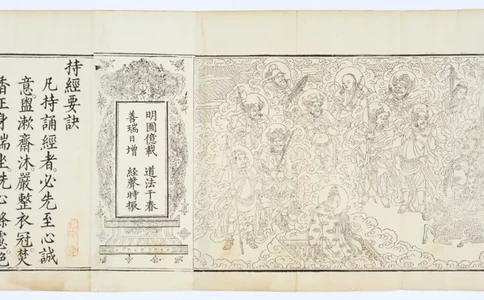 明圖億載　道法千春
善瑞日增　經聲時振
持經要訣
凡持誦經者必先至心誠
意盥漱齋沐嚴整衣冠焚
香正身端坐洗心滌慮